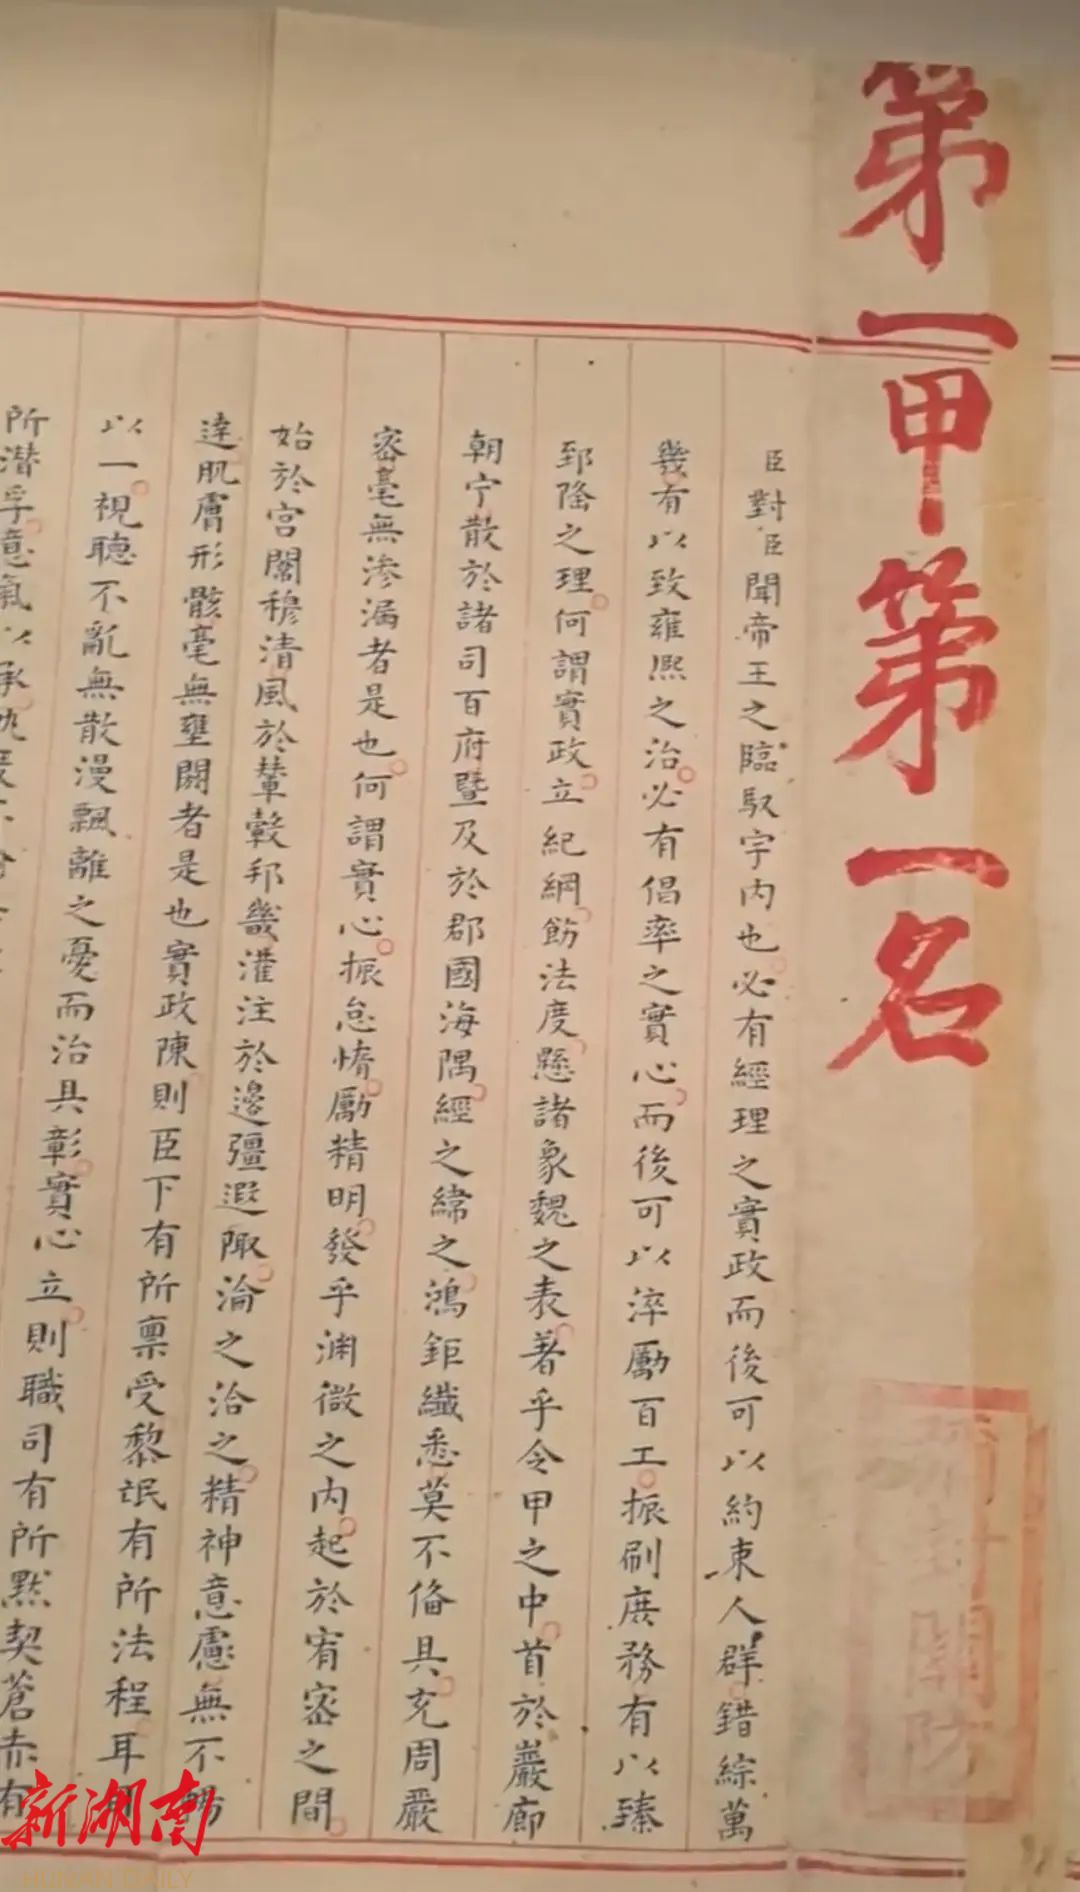 第一甲第一名
臣對臣聞帝王之臨馭宇内也必有經理之實政而後可以約束人群錯綜萬
幾有以致雍熙之治必有倡率之實心而後可以淬勵百工振刷庶務有以臻
郅隆之理何謂實政立紀綱飭法度懸諸象魏之表著乎令甲之中首於巖廊
朝宁散於諸司百府暨及於郡國海隅經之緯之鴻鉅纖悉莫不備具充周嚴
密毫無滲漏者是也何謂實心振怠惰勵精明發乎淵微之内起於宥密之間
始於宮闈穆清風於輦轂邦畿灌注於邊疆遐陬淪之洽之精神意慮無不暢
達肌膚形骸毫無壅閼者是也實政陳則臣下有所禀受黎氓有所法程耳目
以一視聽不亂無散漫飄離之憂而治具彰實心立則職司有所默契蒼赤有
所潛孚意氣以承
關防
新湖南
HUNAN DAILY